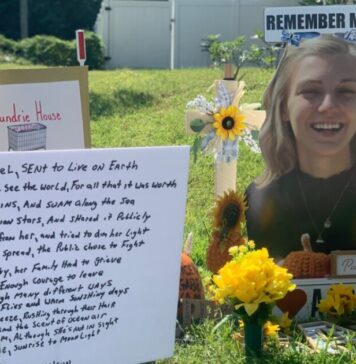 REMEMBER M
undrie House
EL, SENT TO LIVE ON EARTH
SEE THE WORLD, FOR ALL THAT IT WAS WORTH
INS, AND SWAM ALONG THE SEA
STARS, AND SHARED IT PUBLICLY
FROM HER, AND TRIED TO DIM HER LIGHT
SPREAD, THE PUBLIC CHOSE TO FIGHT
BY, HER FAMILY HAD TO GRIEVE
ENOUGH COURAGE TO LEAVE
GH MANY DIFFERENT WAYS
FLIES AND WARM SUNSHINY DAYS
EEZE, RUSHING THROUGH THEIR HAIR
AND THE SCENT OF OCEAN AIR
M, ALTHOUGH SHE'S NOT IN SIGHT
E, SUNRISE TO MOONLIGHT